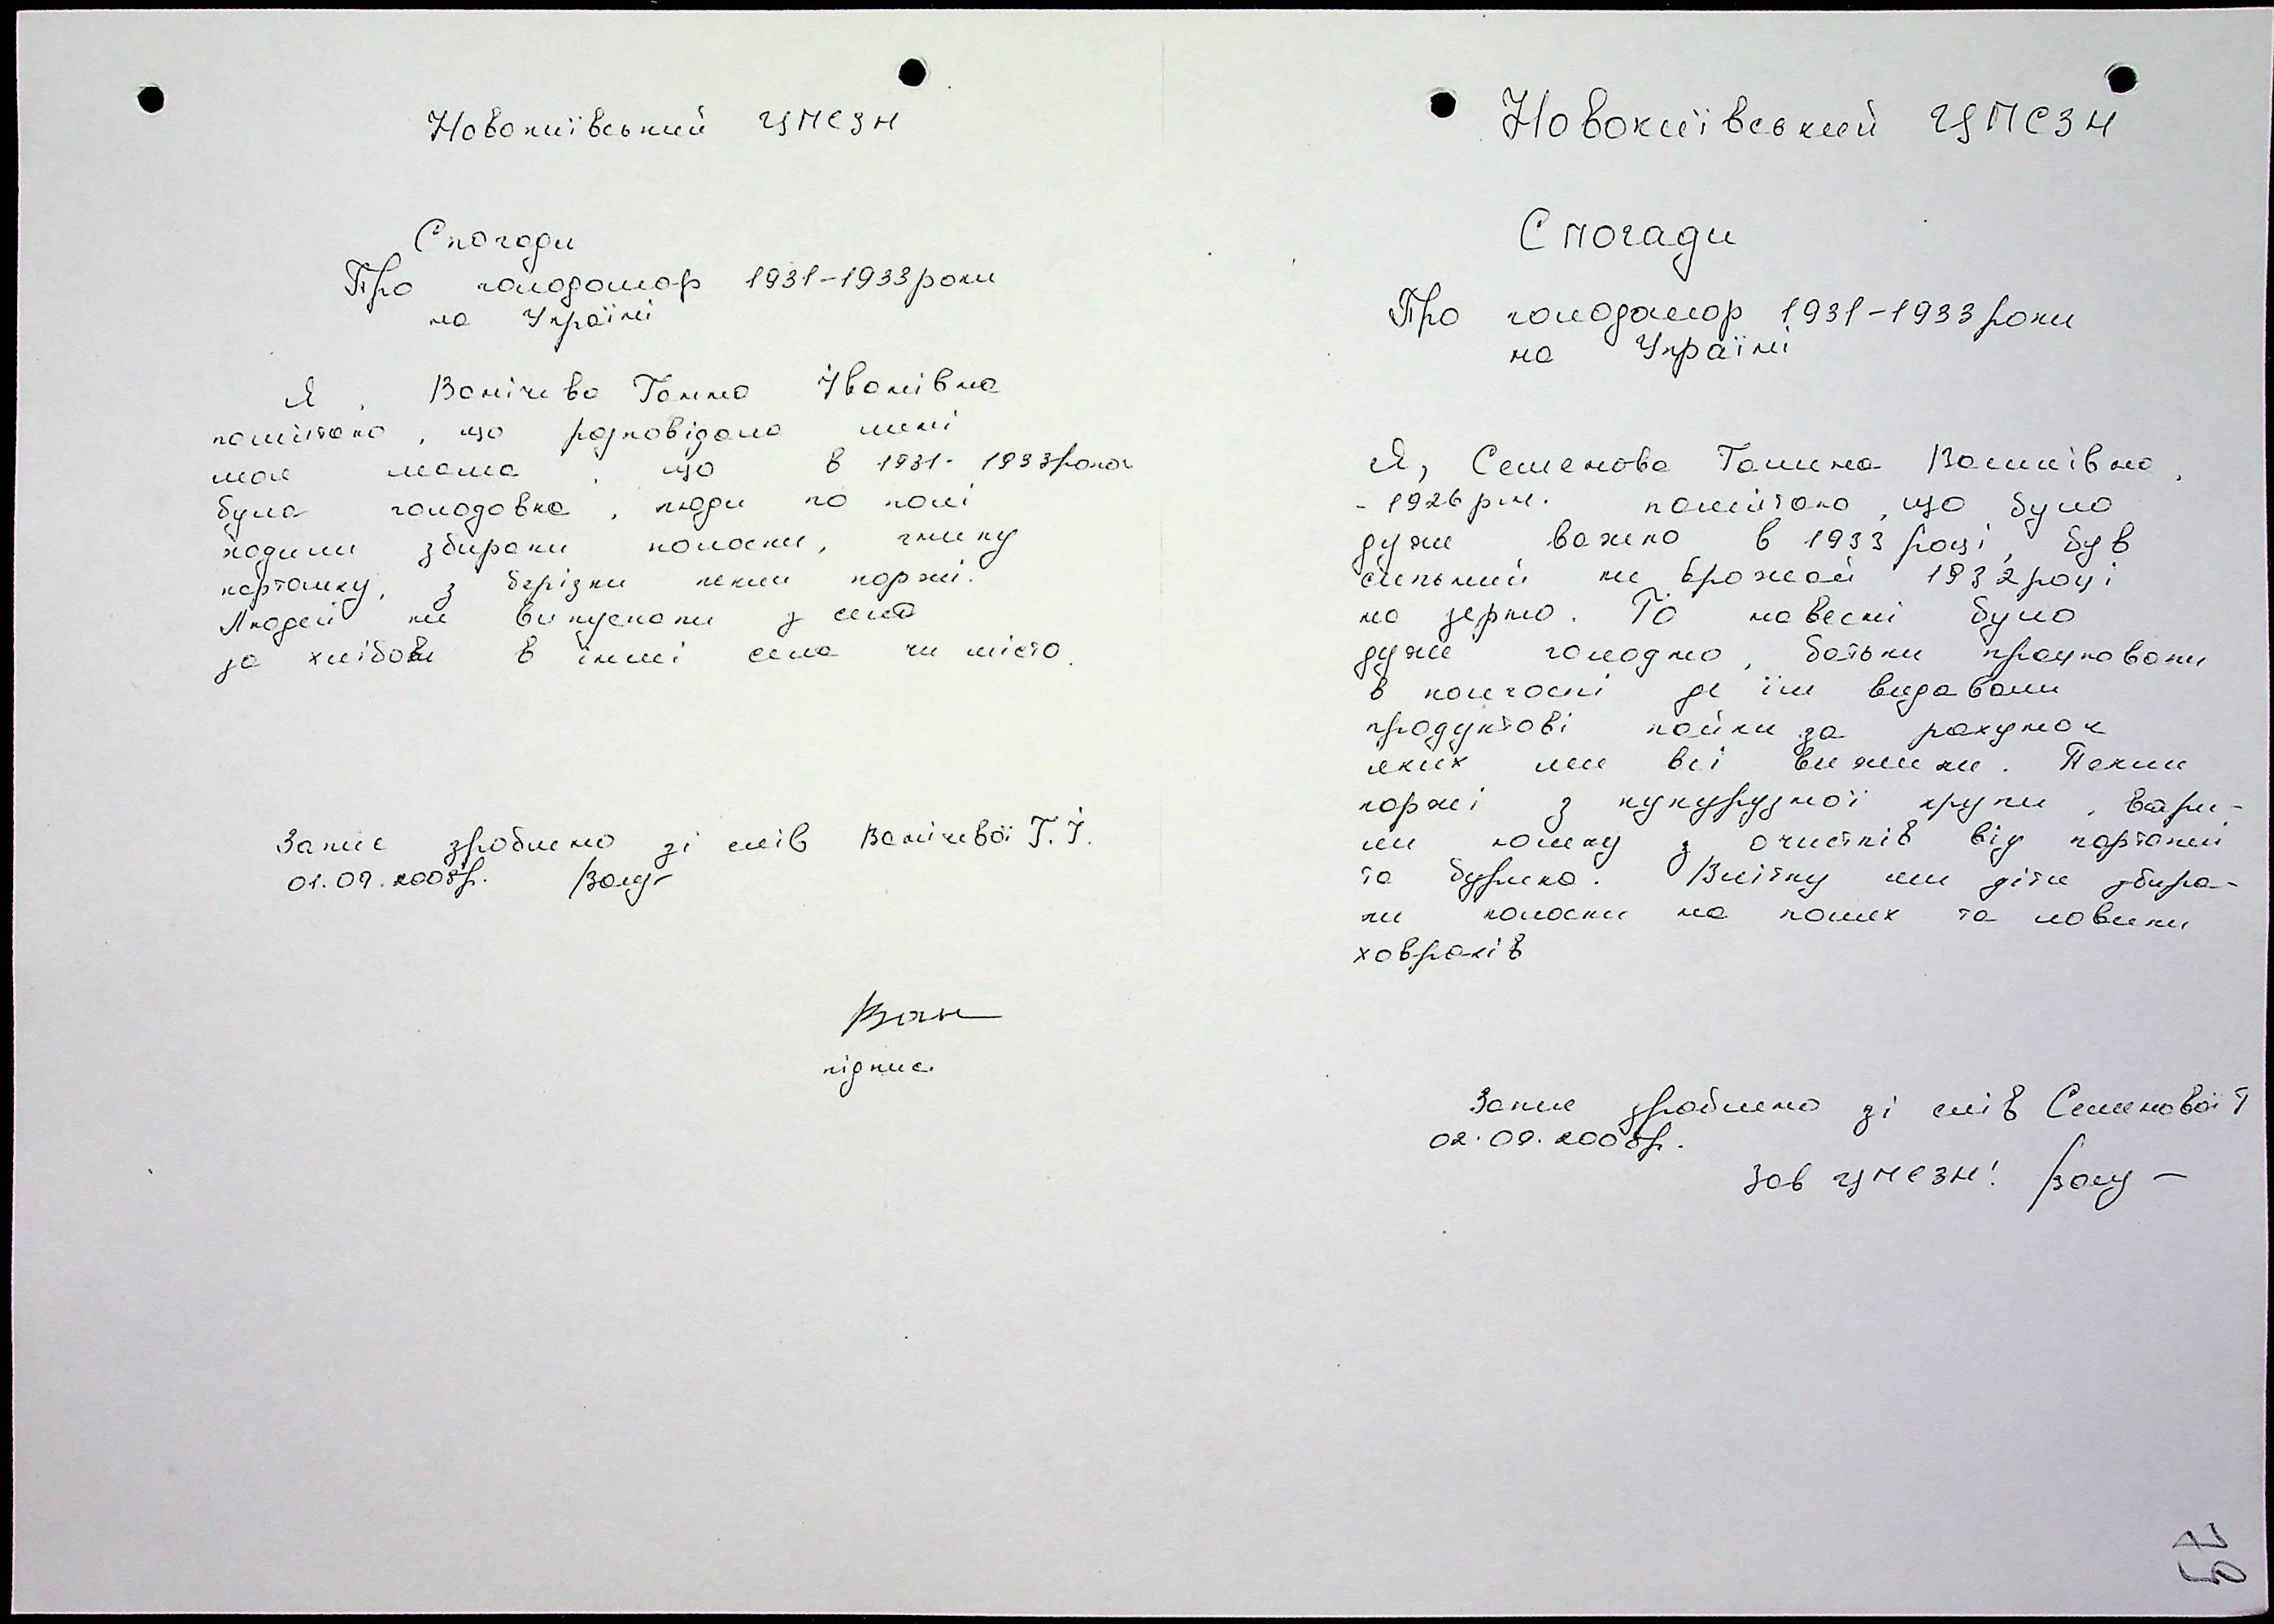 Новокиївський ЦПСЗН
Спогади
Про голодомор 1931-1933 роки
на Україні
Я, Ванічева Ганна Іванівна
памятаю, що розповідала мені
моя мама, що в 1931-1933 роках
була голодовка, люди по полі
ходили збирали колоски, гнилу
картошку, з берізки пекли коржі.
Людей не випускали з села
за хлібом в інші села чи місто.
Запис зроблено зі слів Ванічевої Г.І.
01.09.2008р.
підпис.
Новокиївський ЦПСЗН
Спогади
Про голодомор 1931-1933 роки
на Україні
Я, Семенова Галина Василівна,
- 1926 р.н. памятаю, що було
дуже важко в 1933 році, був
сильний не врожай 1932 році
на зерно. То навесні було
дуже голодно, батьки працювали
в колгоспі де їм видавали
продуктові пайки за рахунок
яких ми всі вижили. Пекли
коржі з кукурузної крупи, вари-
ли юшку з очистків від картоплі
та буряка. Влітку ми діти збира-
ли колоски на полях та ловили
ховрахів
Запис зроблено зі слів Семенової Г
02.09.2008р.
Зав ЦПСЗН:
79